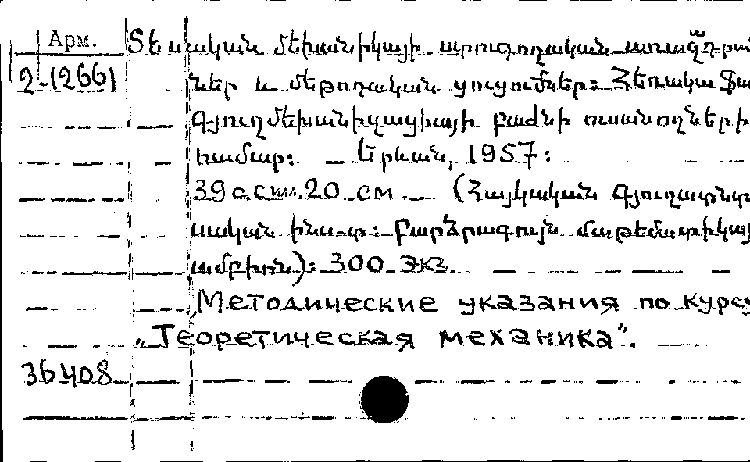 Арм.
Տեսական մեխանիկայի ստուգողական առաջադրան
2-(266) ներ և մեթոդական ցուցումներ: Հեռակա ֆա
Գյուղմեխանիզացիայի բաժնի ուսանողների
համար: Երևան, 1957:
39 с.с илл. 20 см (Հայկական Գյուղատնտե
սական ինս-տ: Բարձրագույն մաթեմատիկայի
ամբիոն): 300 экз.
Методические указания по курсу
„Теоретическая механика".
36408